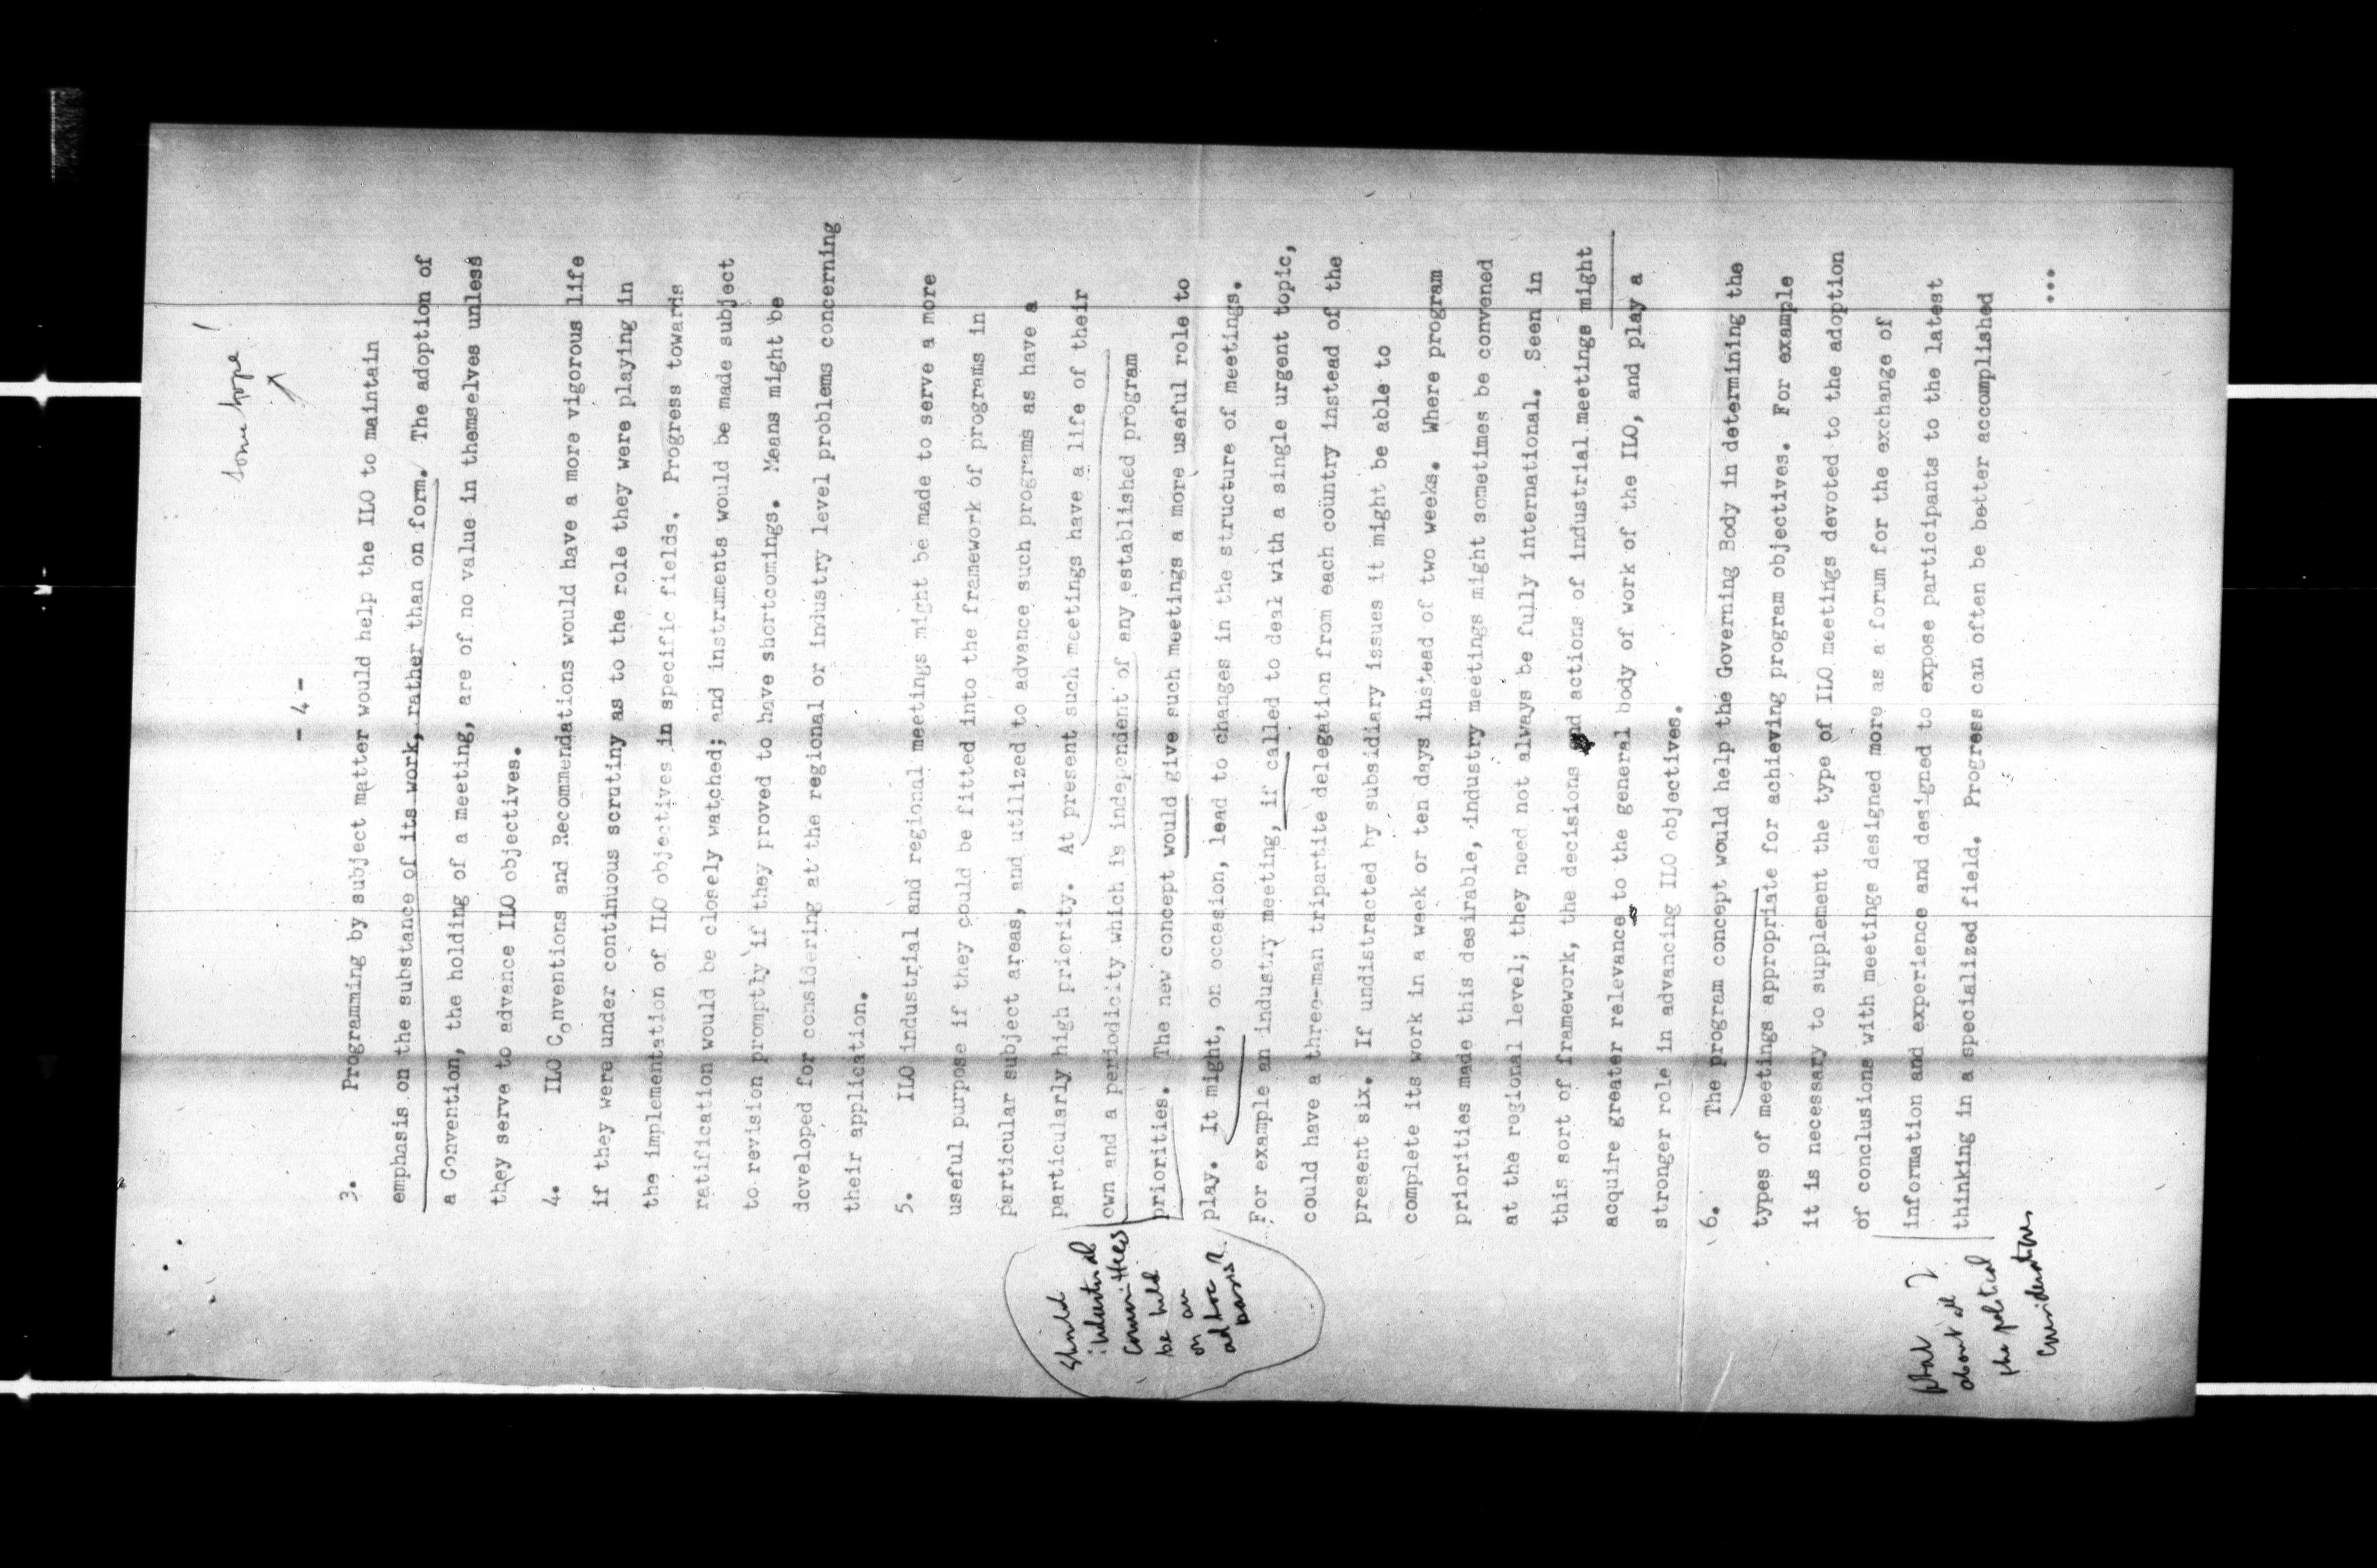 Some hope!
- 4 -
3. Programming by subject matter would help the ILO to maintain
emphasis on the substance of its work, rather than on form. The adoption of
a Convention, the holding of a meeting, are of no value in themselves unless
they serve to advance ILO objectives.
4. ILO Conventions and Recommendations would have a more vigorous life
if they were under continuous scrutiny as to the role they were playing in
the implementation of ILO objectives in specific fields. Progress towards
ratification would be closely watched; and instruments would be made subject
to revision promptly if they proved to have shortcomings. Means might be
developed for considering at the regional or industry level problems concerning
their application.
5. ILO industrial and regional meetings might be made to serve a more
useful purpose if they could be fitted into the framework of programs in
particular subject areas, and utilized to advance such programs as have a
particularly high priority. At present such meetings have a life of their
own and a periodicity which is independent of any established program
priorities. The new concept would give such meetings a more useful role to
play. It might, on occasion, lead to changes in the structure of meetings.
For example an industry meeting, if called to deal with a single urgent topic,
could have a three-man tripartite delegation from each country instead of the
present six. If undistracted by subsidiary issues it might be able to
complete its work in a week or ten days instead of two weeks. Where program
priorities made this desirable, industry meetings might sometimes be convened
at the regional level; they need not always be fully international. Seen in
this sort of framework, the decisions and actions of industrial meetings might
acquire greater relevance to the general body of work of the ILO, and play a
stronger role in advancing ILO objectives.
Should
industrial
Committees
be held
on an
ad hoc
basis?
6. The program concept would help the Governing Body in determining the
types of meetings appropriate for achieving program objectives. For example
it is necessary to supplement the type of ILO meetings devoted to the adoption
of conclusions with meetings designed more as a forum for the exchange of
information and experience and designed to expose participants to the latest
thinking in a specialized field. Progress can often be better accomplished
What
about all
the political
considerations?
...